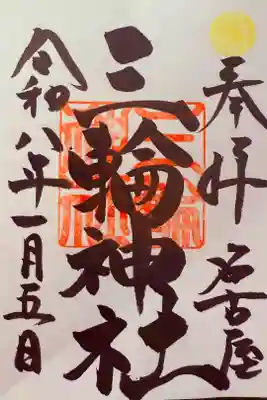 奉拝 名古屋
三輪神社
令和八年一月五日